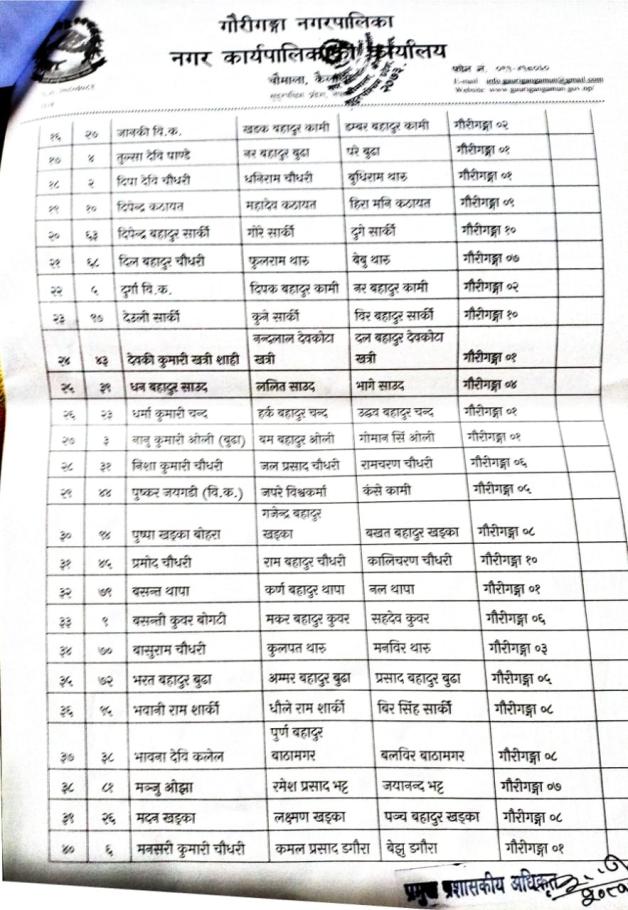 गौरीगङ्गा नगरपालिका
नगर कार्यपालिकाको कार्यालय
चौमाला,
फोन नं. ०९१-
E-mail info.gaurigangamun@gmail.com
Website: www.gaurigangamun.gov.np/
१६ २७ जानकी वि.क. खडक बहादुर कामी डम्बर बहादुर कामी गौरीगङ्गा ०२
१७ ४ तुल्सा देवि पाण्डे नर बहादुर बुढा घरे बुढा गौरीगङ्गा ०१
१८ २ दिपा देवि चौधरी धनिराम चौधरी बुधिराम थारु गौरीगङ्गा ०१
१९ १० दिपेन्द्र कठायत महादेव कठायत हिरा मनि कठायत गौरीगङ्गा ०९
२० ६३ दिपेन्द्र बहादुर सार्की गोरे सार्की दुगे सार्की गौरीगङ्गा १०
२१ ६८ दिल बहादुर चौधरी फूलराम थारु बेबु थारु गौरीगङ्गा ०७
२२ ५ दुर्गा वि.क. दिपक बहादुर कामी नर बहादुर कामी गौरीगङ्गा ०२
२३ १७ देउली सार्की कुने सार्की विर बहादुर सार्की गौरीगङ्गा १०
नन्दलाल देवकोटा दल बहादुर देवकोटा
२४ ४३ देवकी कुमारी खत्री शाही खत्री खत्री गौरीगङ्गा ०१
२५ ३९ धन बहादुर साउद ललित साउद भागे साउद गौरीगङ्गा ०४
२६ २३ धर्मा कुमारी चन्द हर्क बहादुर चन्द उद्धव बहादुर चन्द गौरीगङ्गा ०१
२७ ३ नानु कुमारी ओली (बुढा) बम बहादुर ओली गोमान सिं ओली गौरीगङ्गा ०१
२८ ३१ निशा कुमारी चौधरी जल प्रसाद चौधरी रामचरण चौधरी गौरीगङ्गा ०६
२९ ४४ पुष्कर जयगडी (वि.क.) जपरे विश्वकर्मा कंसे कामी गौरीगङ्गा ०५
गजेन्द्र बहादुर
३० १४ पुष्पा खड्का बोहरा खड्का बखत बहादुर खड्का गौरीगङ्गा ०८
३१ ४५ प्रमोद चौधरी राम बहादुर चौधरी कालिचरण चौधरी गौरीगङ्गा १०
३२ ७९ बसन्त थापा कर्ण बहादुर थापा नल थापा गौरीगङ्गा ०१
३३ ९ बसन्ती कुवर बोगटी मकर बहादुर कुवर सहदेव कुवर गौरीगङ्गा ०६
३४ ७० बासुराम चौधरी कुलपत थारु मनविर थारु गौरीगङ्गा ०३
३५ ७२ भरत बहादुर बुढा अम्मर बहादुर बुढा प्रसाद बहादुर बुढा गौरीगङ्गा ०५
३६ १५ भवानी राम शार्की धौले राम शार्की बिर सिंह सार्की गौरीगङ्गा ०८
पुर्ण बहादुर
३७ ३८ भावना देवि कलेल बाठामगर बलविर बाठामगर गौरीगङ्गा ०८
३८ ८१ मञ्जु ओझा रमेश प्रसाद भट्ट जयानन्द भट्ट गौरीगङ्गा ०७
३९ २६ मदन खड्का लक्ष्मण खड्का पञ्च बहादुर खड्का गौरीगङ्गा ०८
४० ६ मनसरी कुमारी चौधरी कमल प्रसाद डगौरा बेझु डगौरा गौरीगङ्गा ०१
प्रमुख प्रशासकीय अधिकृत